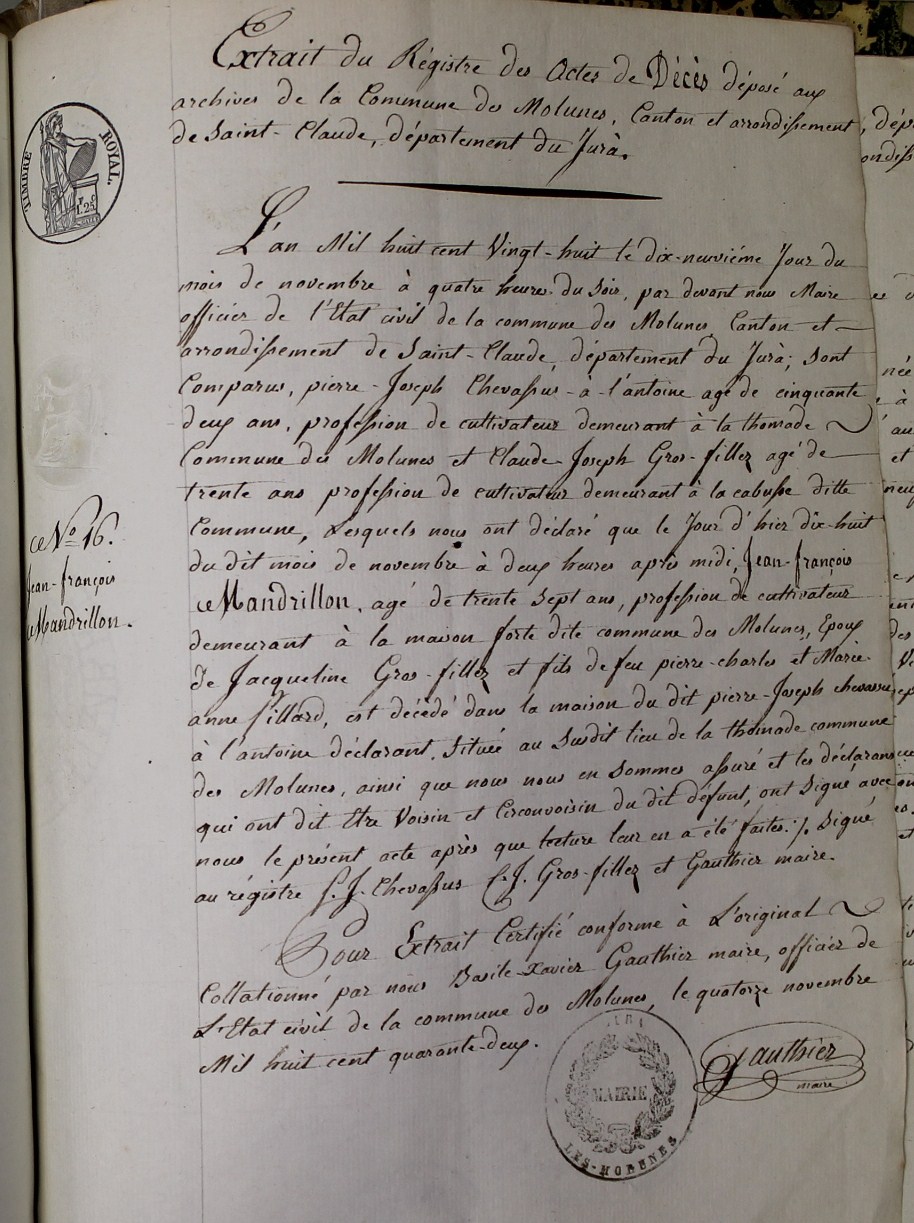 Extrait du Régistre des Actes de Décès déposé aux
archives de la Commune des Molunes, Canton et arrondissement
de Saint-Claude, département du Jurà.
TIMBRE ROYAL.
F. C.
1.25
L'an Mil huit cent Vingt-huit le dix-neuviéme Jour du
mois de novembre à quatre heures du Soir, par devant nous Maire
officier de l'Etat civil de la commune des Molunes, Canton et
arrondissement de Saint-Claude, département du Jurà; Sont
Comparus, pierre-Joseph Chevassus-à-l'antoine agé de cinquante
deux ans, profession de cultivateur demeurant à la thomade
Commune des Molunes et Claude-Joseph Gros-fillez agé de
trente ans profession de cultivateur demeurant à la cabusse ditte
Commune, Lesquels nous ont déclaré que le Jour d'hier dix-huit
du dit mois de novembre à deux heures après midi, Jean-françois
Mandrillon, agé de trente Sept ans, profession de cultivateur
demeurant à la maison forte dite commune des Molunes, Epoux
de Jacqueline Gros-fillez et fils de feu pierre-charles et Marie-
anne fillard, est décédé dans la maison du dit pierre-Joseph chevassus
à l'antoine déclarant, Située au Susdit lieu de la thomade commune
des Molunes, ainsi que nous nous en Sommes assuré et les déclarans
qui ont dit Etre Voisin et Circonvoisin du dit défunt, ont Signé avec
nous le présent acte après que lecture leur en a été faites. Signé
au régistre P. J. Chevassus C. J. Gros-fillez et Gauthier maire.
Pour Extrait Certifié conforme à L'original
Collationné par nous Basile-Xavier Gauthier maire, officier de
L'Etat civil de la commune des Molunes, le quatorze novembre
Mil huit cent quarante-deux.
Nº 16.
Jean-françois
Mandrillon.
MAIRIE
LES-MOLUNES
Gauthier
maire